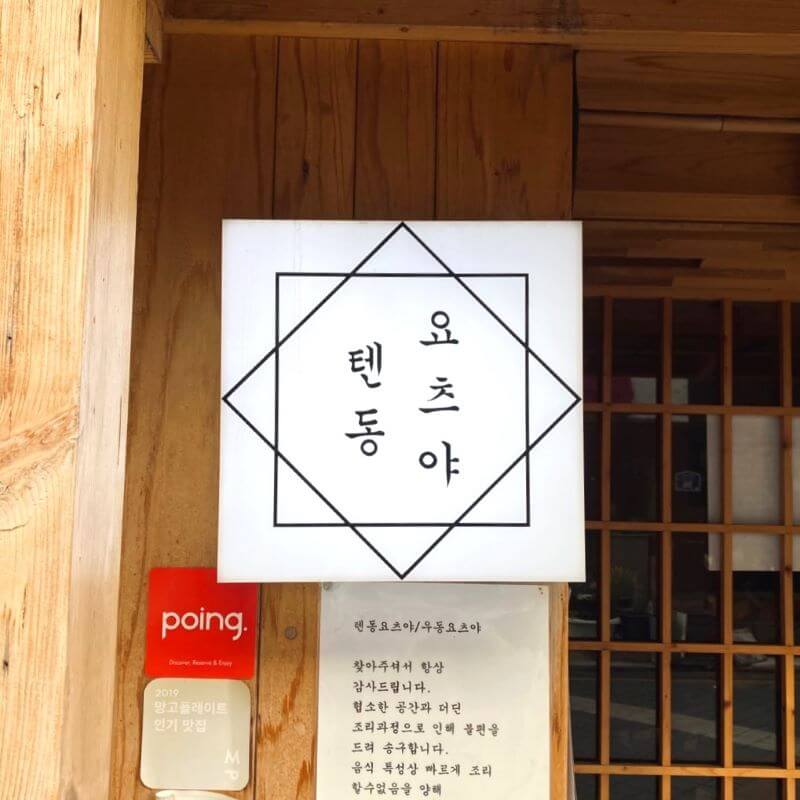 텐동
요츠야
poing.
Discover, Reserve & Enjoy
2019
망고플레이트
인기 맛집
MP
텐동요츠야/우동요츠야
찾아주셔서 항상
감사드립니다.
협소한 공간과 더딘
조리과정으로 인해 불편을
드려 송구합니다.
음식 특성상 빠르게 조리
할수없음을 양해